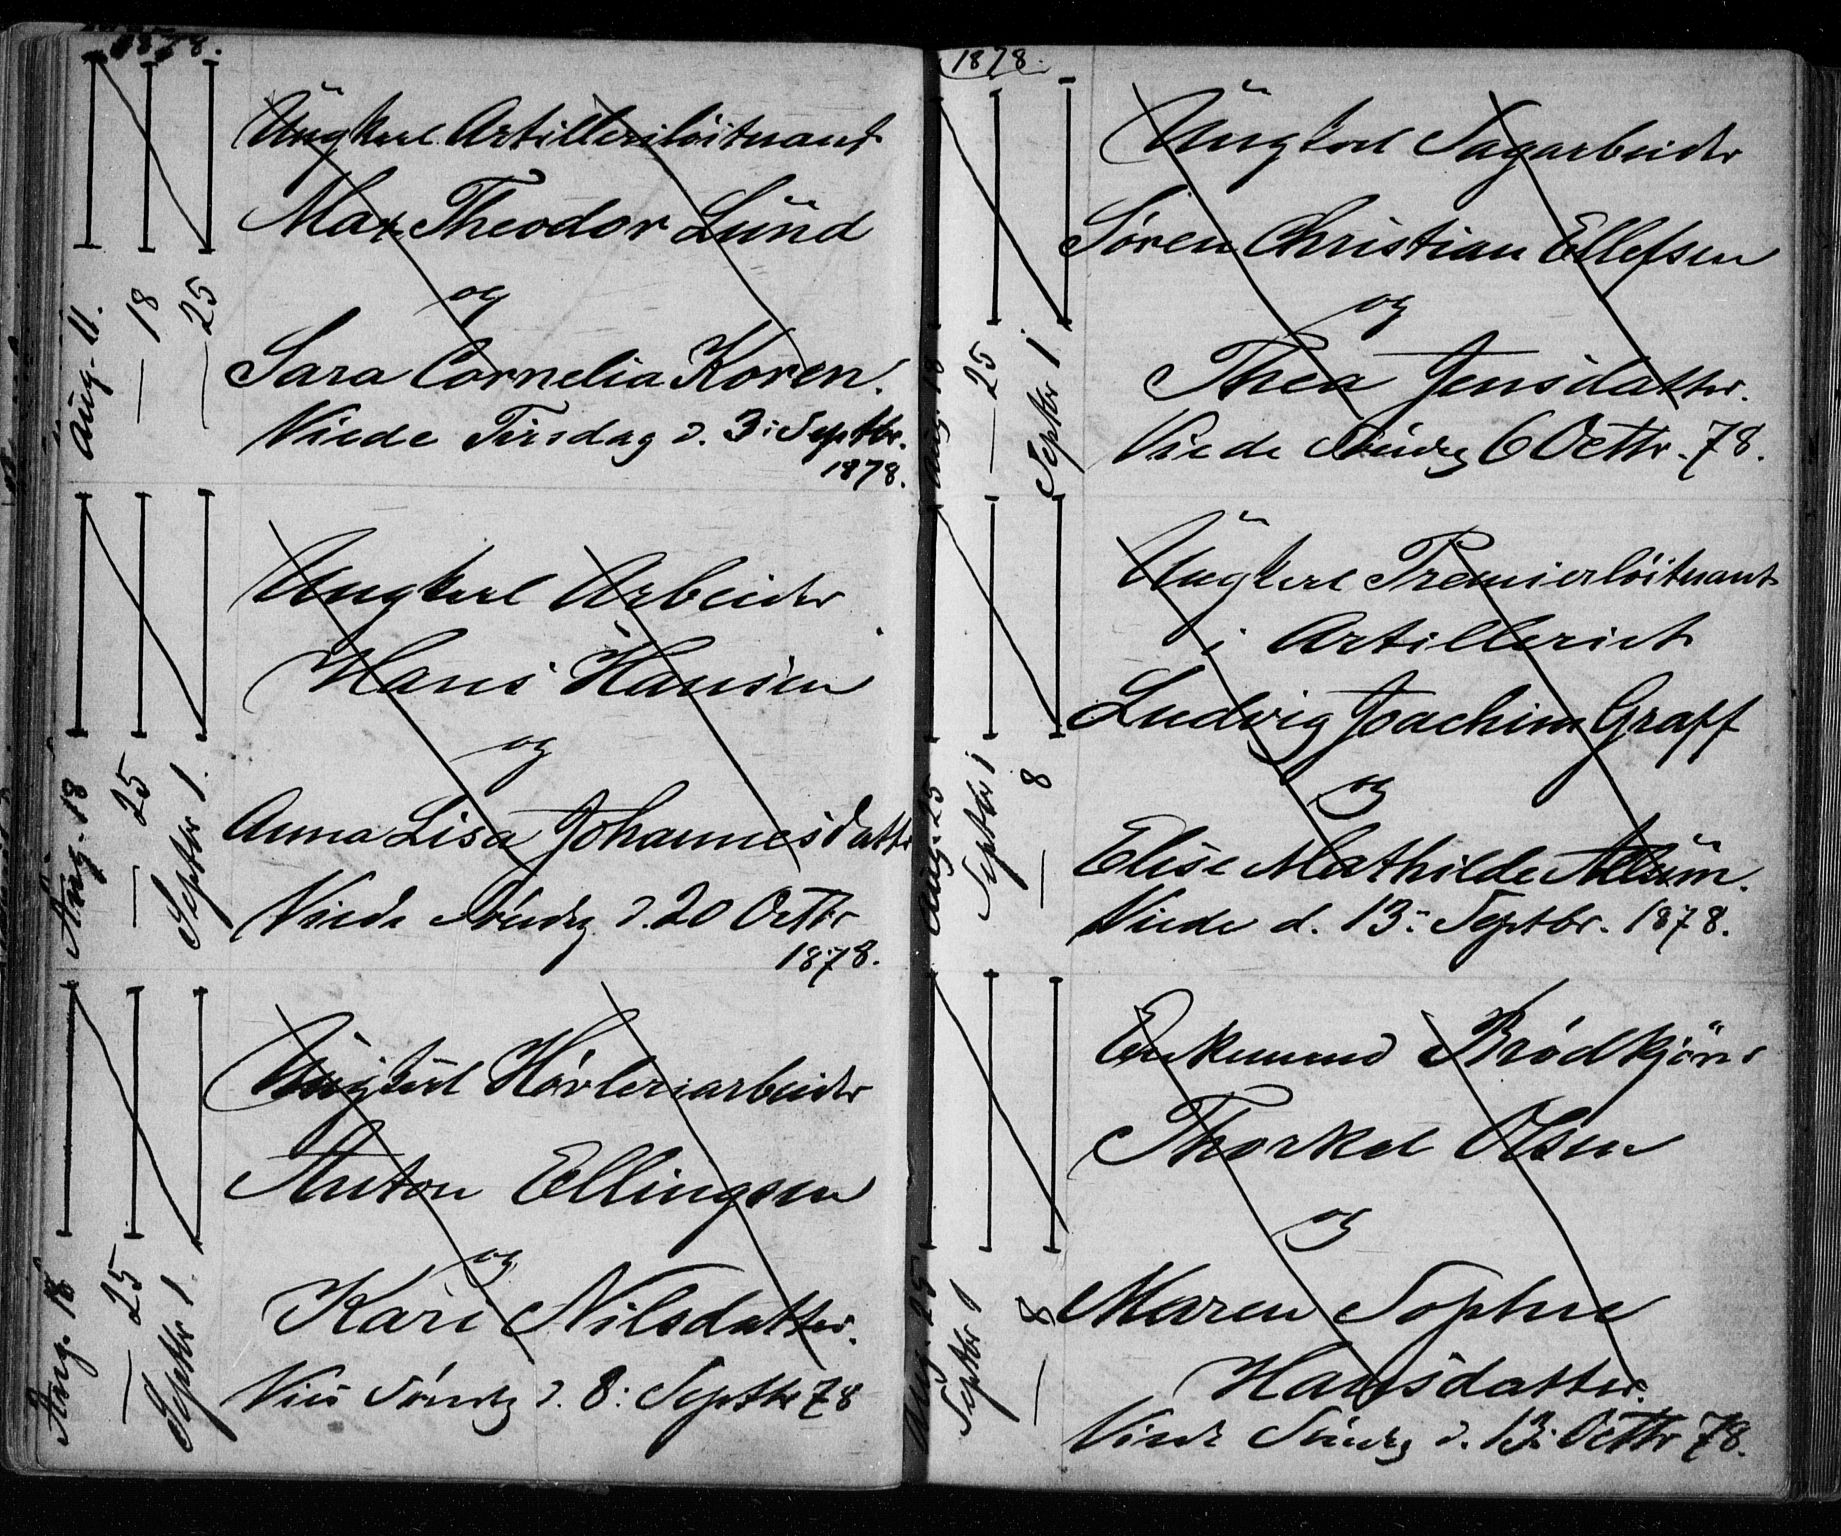 1878.
Aug. 11.
— 18
— 25
Ungkarl Artilleriløitnant
Max Theodor Lund
og
Sara Cornelia Koren.
Viede Tirsdag d. 3: Septbr.
1878.
Aug. 18
— 25
Septbr 1.
Ungkarl Arbeider
Hans Hansen
og
Anna Lisa Johannesdattr
Viede Søndg d. 20 Octbr
1878.
Aug. 18
— 25
Septbr 1.
Ungkarl Høvleriarbeider
Anton Ellingsen
og
Kari Nilsdatter.
Søndg d. 8: Septbr 78
1878.
Aug. 18
— 25
Septbr 1
Ungkarl Sagarbeider
Søren Christian Ellefsen
og
Thea Jensdatter.
Viede Søndg 6 Octbr. 78.
Aug. 25
Septbr 1
— 8
Ungkarl Premierløitnant
i Artilleriet
Ludvig Joachim Graff
og
Elise Mathilde Allum.
Viede d. 13: Septbr. 1878.
Aug. 25
Septbr 1
— 8
Enkemand
Thorkel Olsen
og
Maren Sophie
Hansdatter.
Viede Søndg d. 13: Octbr 78.